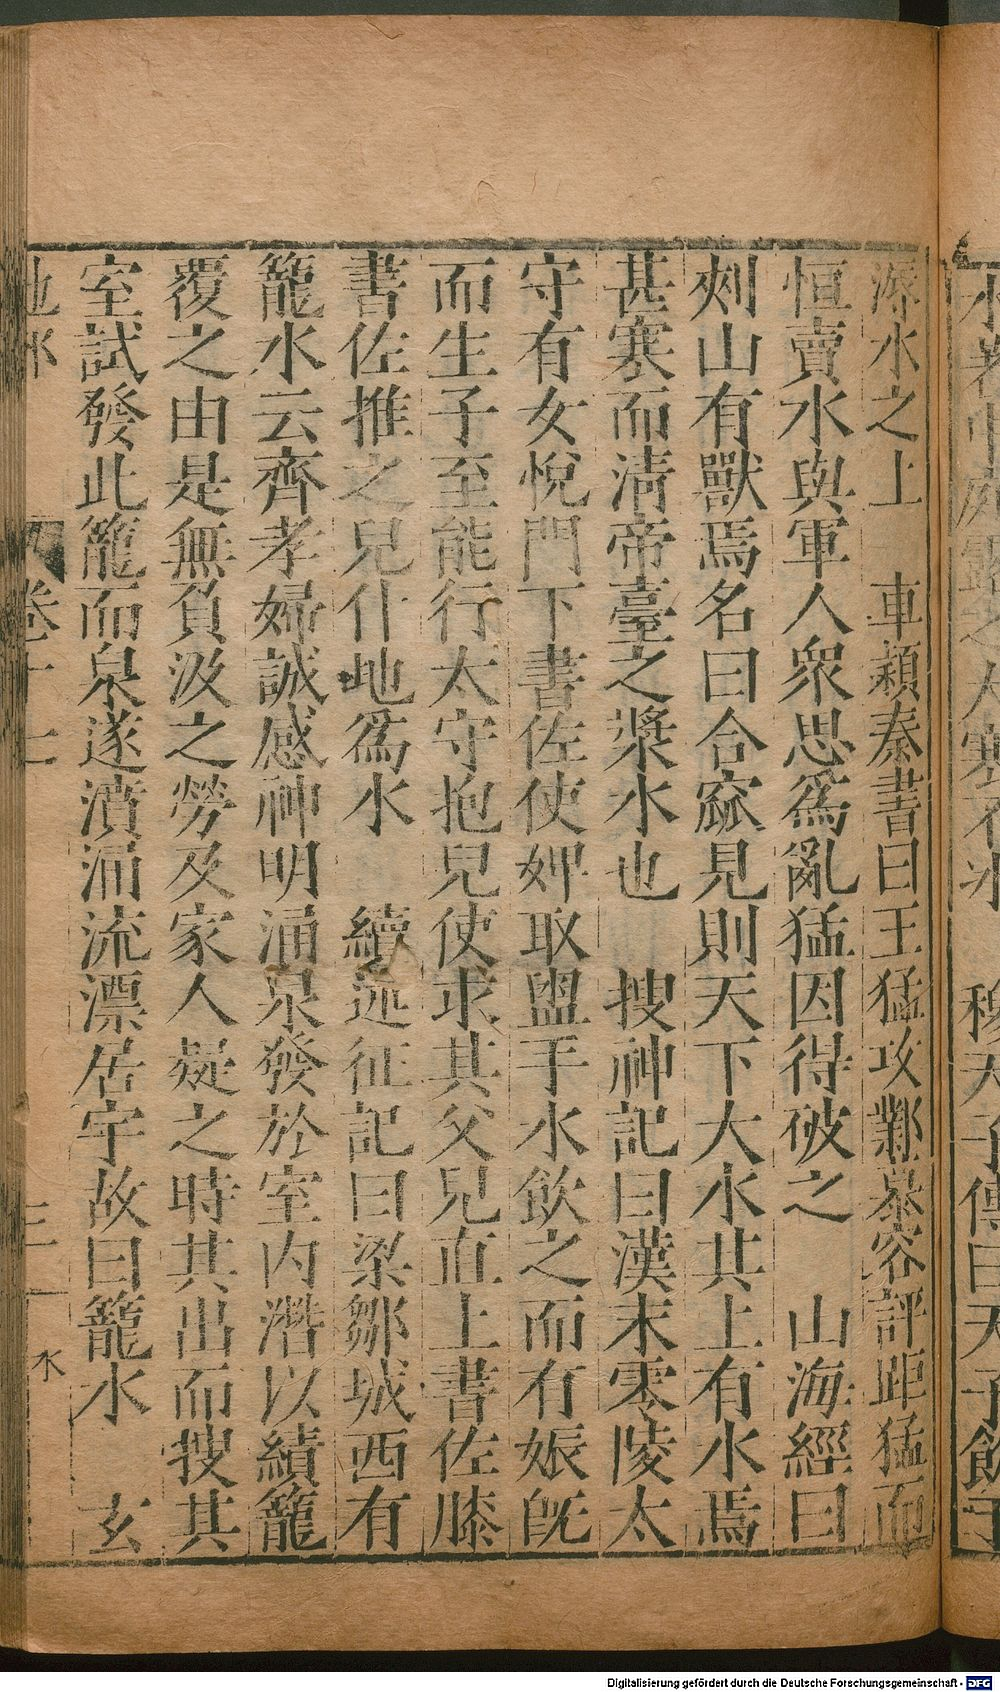 水 穆天子傳曰天子飲于
㵋水之上 車頻秦書曰王猛攻鄴慕容評距猛而
恒賣水與軍人衆思爲亂猛因得破之 山海經曰
剡山有獸焉名曰合窳見則天下大水其上有水焉
甚寒而清帝臺之漿水也 搜神記曰漢末零陵太
守有女悅門下書佐使婢取盥手水飲之而有娠旣
而生子至能行太守抱兒使求其父兒直上書佐膝
書佐推之兒仆地爲水 續述征記曰梁鄒城西有
籠水云齊孝婦誠感神明涌泉發於室內潛以績籠
覆之由是無負汲之勞及家人疑之時其出而搜其
室試發此籠而泉遂濆涌流漂居宇故曰籠水 玄
地部 卷十七 三 水
Digitalisierung gefördert durch die Deutsche Forschungsgemeinschaft - DFG